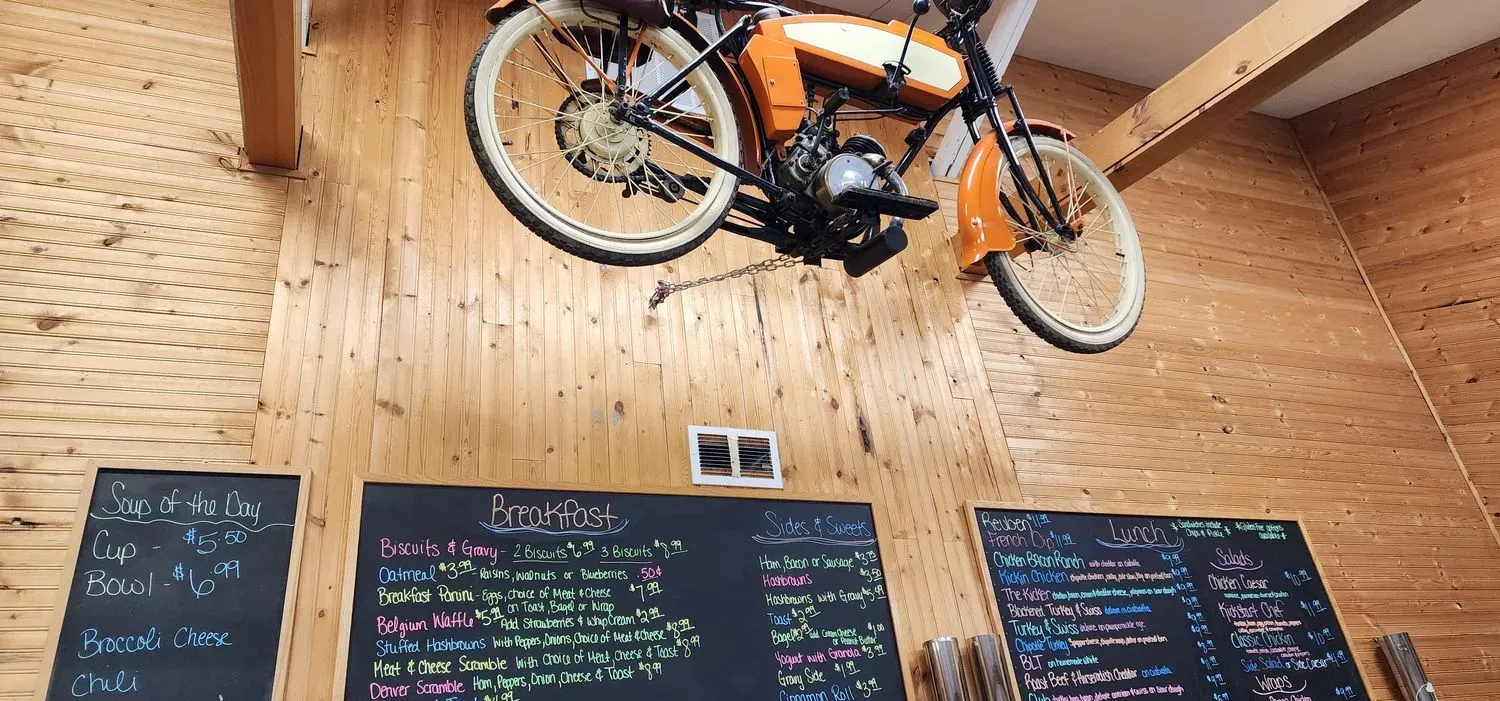 Soup of the Day
Cup - $5.50
Bowl - $6.99
Broccoli Cheese
Chili
Breakfast
Biscuits & Gravy - 2 Biscuits $6.99 3 Biscuits $8.99
Oatmeal $3.99 - Raisins, Walnuts or Blueberries .50¢
Breakfast Panini - Eggs, Choice of Meat & Cheese $7.99
on Toast, Bagel or Wrap
Belgium Waffle $5.99 Add Strawberries & Whip Cream $2.99
Stuffed Hashbrowns with Peppers, Onions, Choice of Meat & Cheese $8.99
Meat & Cheese Scramble with Choice of Meat, Cheese & Toast $8.99
Denver Scramble Ham, Peppers, Onion, Cheese & Toast $8.99
Sides & Sweets
Ham, Bacon or Sausage $3.75
Hashbrowns $3.50
Hashbrowns with Gravy $5.99
Toast $2.99
Bagel Add Cream Cheese or Peanut Butter $1.00
Yogurt with Granola $3.99
Gravy Side $1.99
Cinnamon Roll $3.99
Lunch
Sandwiches include Chips & Pickle
*Gluten Free options available*
Reuben $11.99
French Dip $11.99
Chicken Bacon Ranch with cheddar on ciabatta
Kickin Chicken
The Kicker
Blackened Turkey & Swiss
Turkey & Swiss
Chipotle Turkey
BLT on homemade white
Roast Beef & Horseradish Cheddar on ciabatta
Club
Salads
Chicken Caesar
Kickstart Chef
Classic Chicken
Side Salad or Side Caesar
Wraps